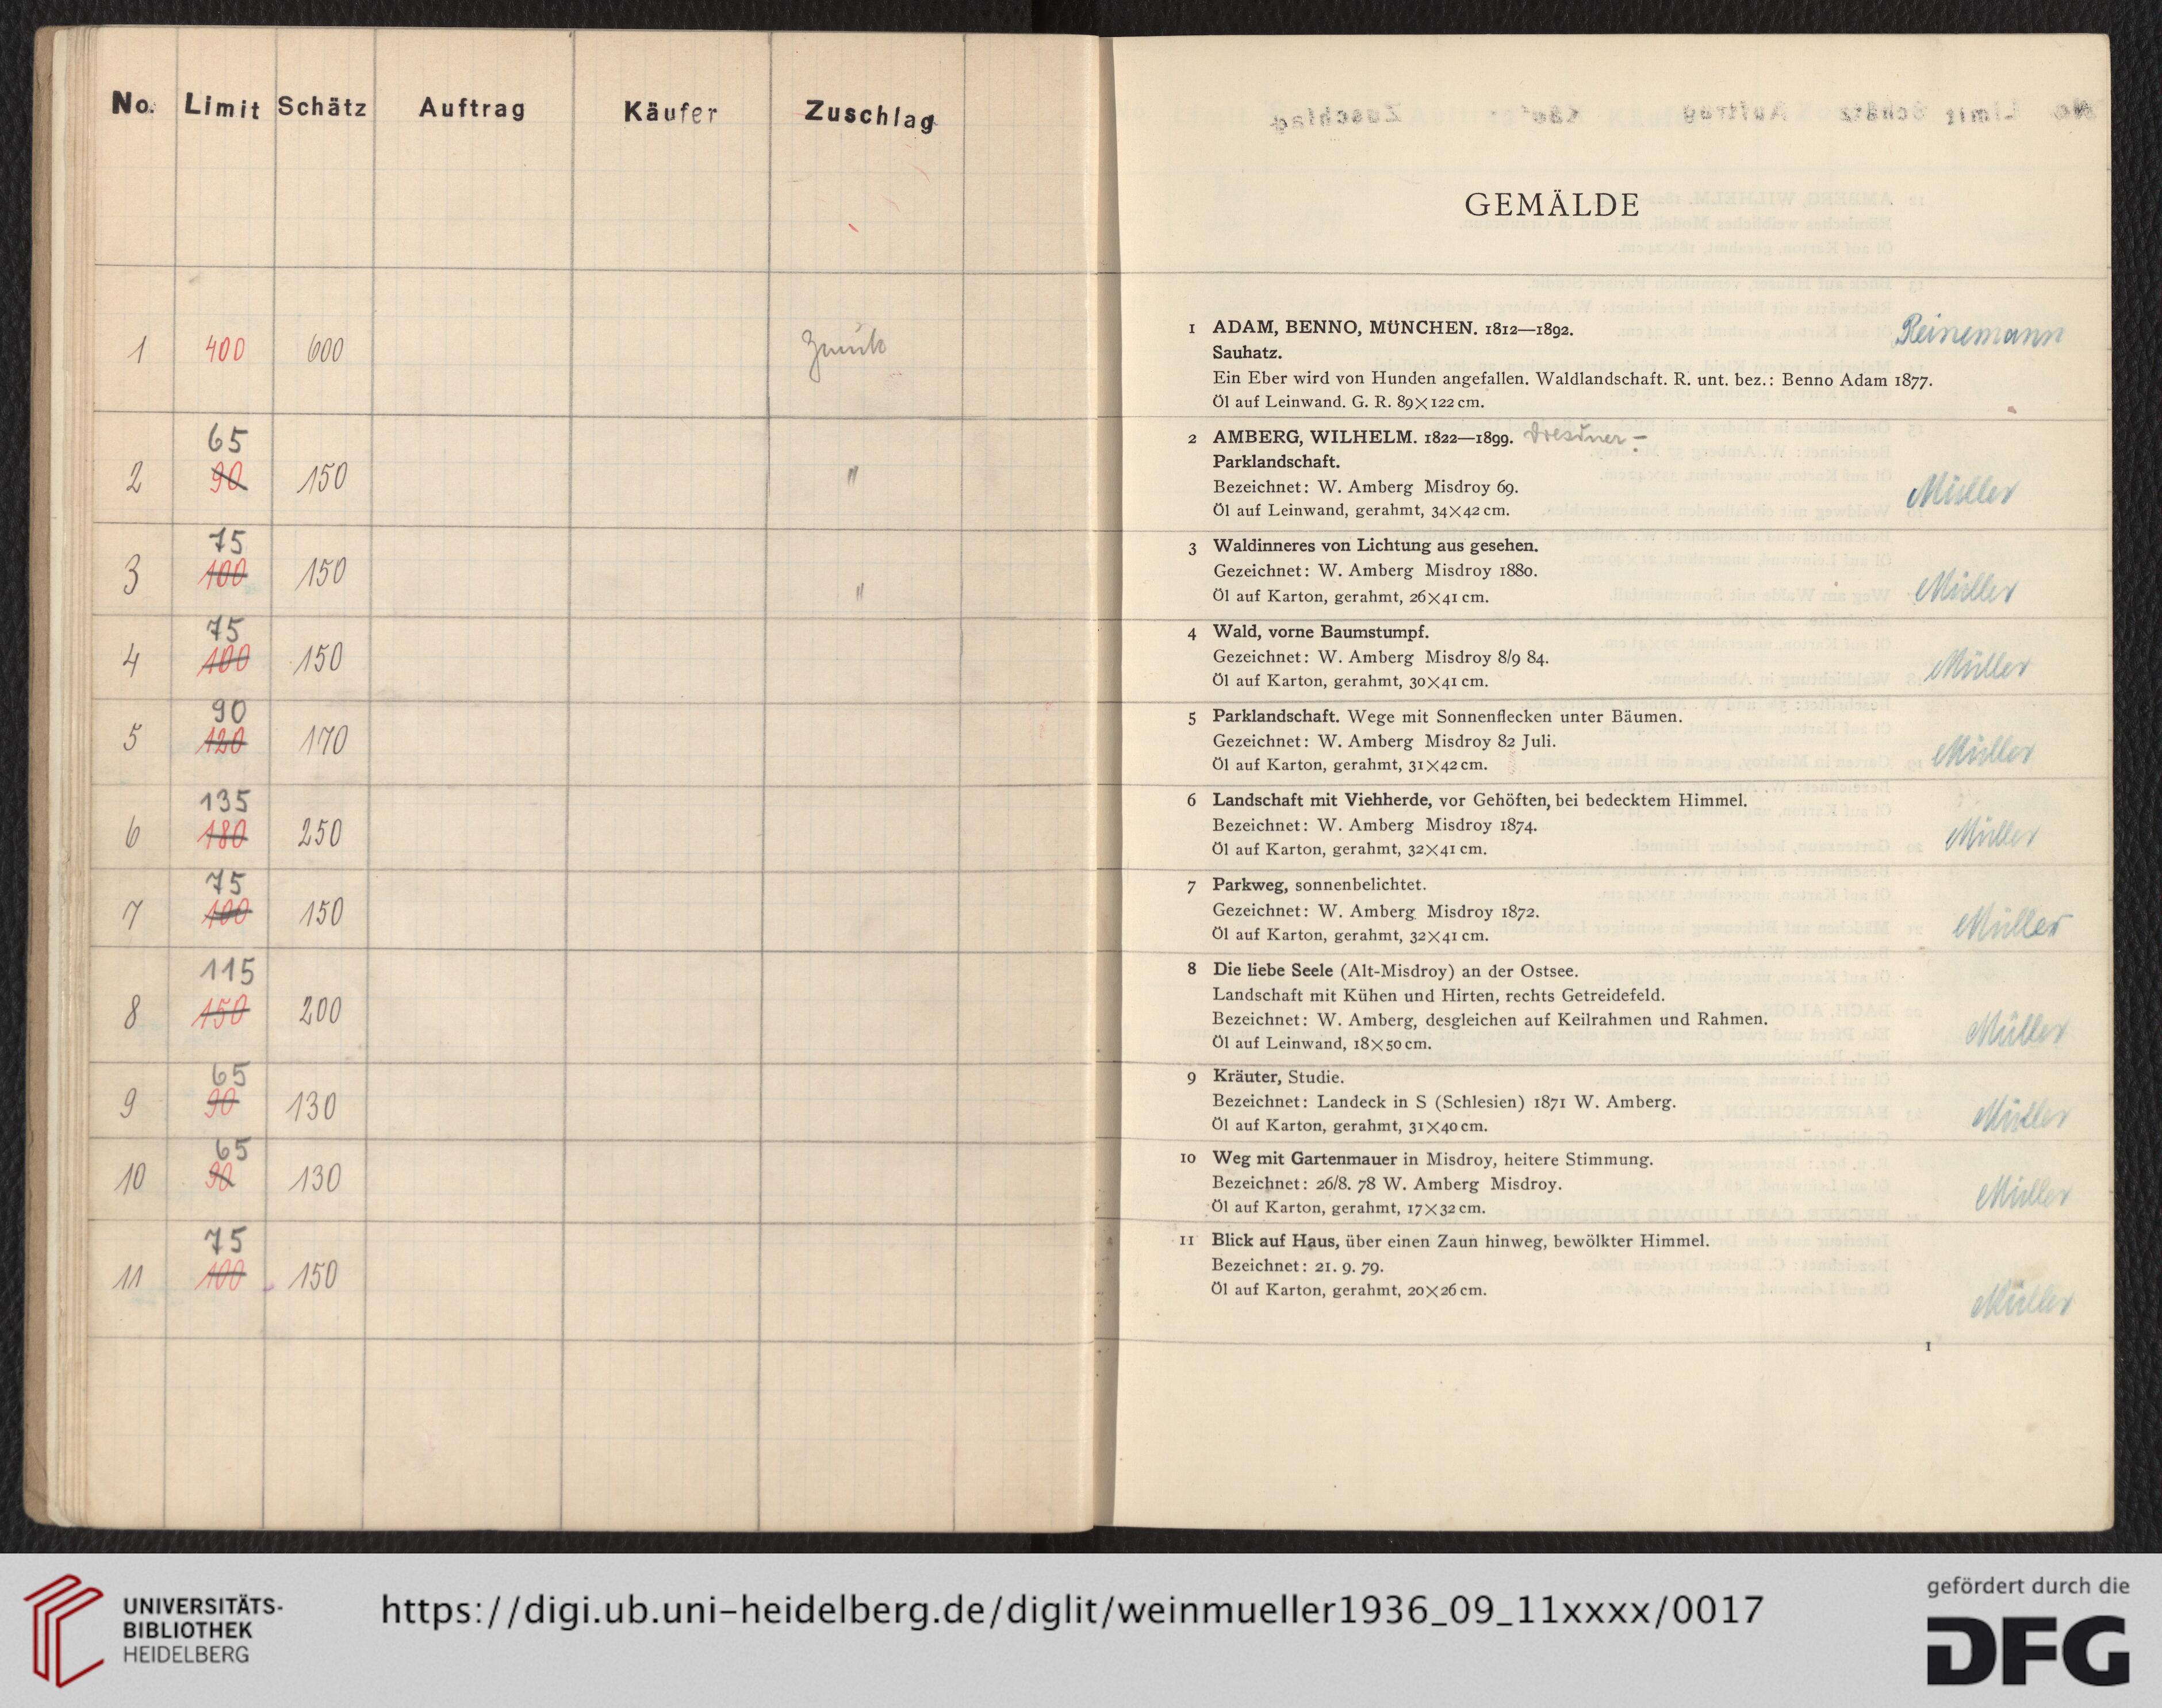 No. Limit Schätz Auftrag Käufer Zuschlag
1 400 600 Zurück
65
2 90 150 "
75
3 100 150 "
75
4 100 150
90
5 120 170
135
6 180 250
75
7 100 150
115
8 150 200
65
9 90 130
65
10 90 130
75
11 100 150
GEMÄLDE
1 ADAM, BENNO, MÜNCHEN. 1812—1892. Reinemann
Sauhatz.
Ein Eber wird von Hunden angefallen. Waldlandschaft. R. unt. bez.: Benno Adam 1877.
Öl auf Leinwand. G. R. 89×122 cm.
2 AMBERG, WILHELM. 1822—1899. Dresdner –
Parklandschaft.
Bezeichnet: W. Amberg Misdroy 69. Müller
Öl auf Leinwand, gerahmt, 34×42 cm.
3 Waldinneres von Lichtung aus gesehen.
Gezeichnet: W. Amberg Misdroy 1880.
Öl auf Karton, gerahmt, 26×41 cm. Müller
4 Wald, vorne Baumstumpf.
Gezeichnet: W. Amberg Misdroy 8/9 84. Müller
Öl auf Karton, gerahmt, 30×41 cm.
5 Parklandschaft. Wege mit Sonnenflecken unter Bäumen.
Gezeichnet: W. Amberg Misdroy 82 Juli. Müller
Öl auf Karton, gerahmt, 31×42 cm.
6 Landschaft mit Viehherde, vor Gehöften, bei bedecktem Himmel.
Bezeichnet: W. Amberg Misdroy 1874. Müller
Öl auf Karton, gerahmt, 32×41 cm.
7 Parkweg, sonnenbelichtet.
Gezeichnet: W. Amberg Misdroy 1872. Müller
Öl auf Karton, gerahmt, 32×41 cm.
8 Die liebe Seele (Alt-Misdroy) an der Ostsee.
Landschaft mit Kühen und Hirten, rechts Getreidefeld.
Bezeichnet: W. Amberg, desgleichen auf Keilrahmen und Rahmen. Müller
Öl auf Leinwand, 18×50 cm.
9 Kräuter, Studie.
Bezeichnet: Landeck in S (Schlesien) 1871 W. Amberg. Müller
Öl auf Karton, gerahmt, 31×40 cm.
10 Weg mit Gartenmauer in Misdroy, heitere Stimmung.
Bezeichnet: 26/8. 78 W. Amberg Misdroy. Müller
Öl auf Karton, gerahmt, 17×32 cm.
11 Blick auf Haus, über einen Zaun hinweg, bewölkter Himmel.
Bezeichnet: 21. 9. 79.
Öl auf Karton, gerahmt, 20×26 cm. Müller
1
UNIVERSITÄTS-
BIBLIOTHEK
HEIDELBERG
https://digi.ub.uni-heidelberg.de/diglit/weinmueller1936_09_11xxxx/0017
gefördert durch die
DFG